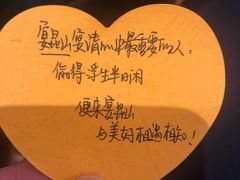 宴昆山宴请心中最重要的人:
偷得浮生半日闲
便来宴昆山
与美好相遇相知!